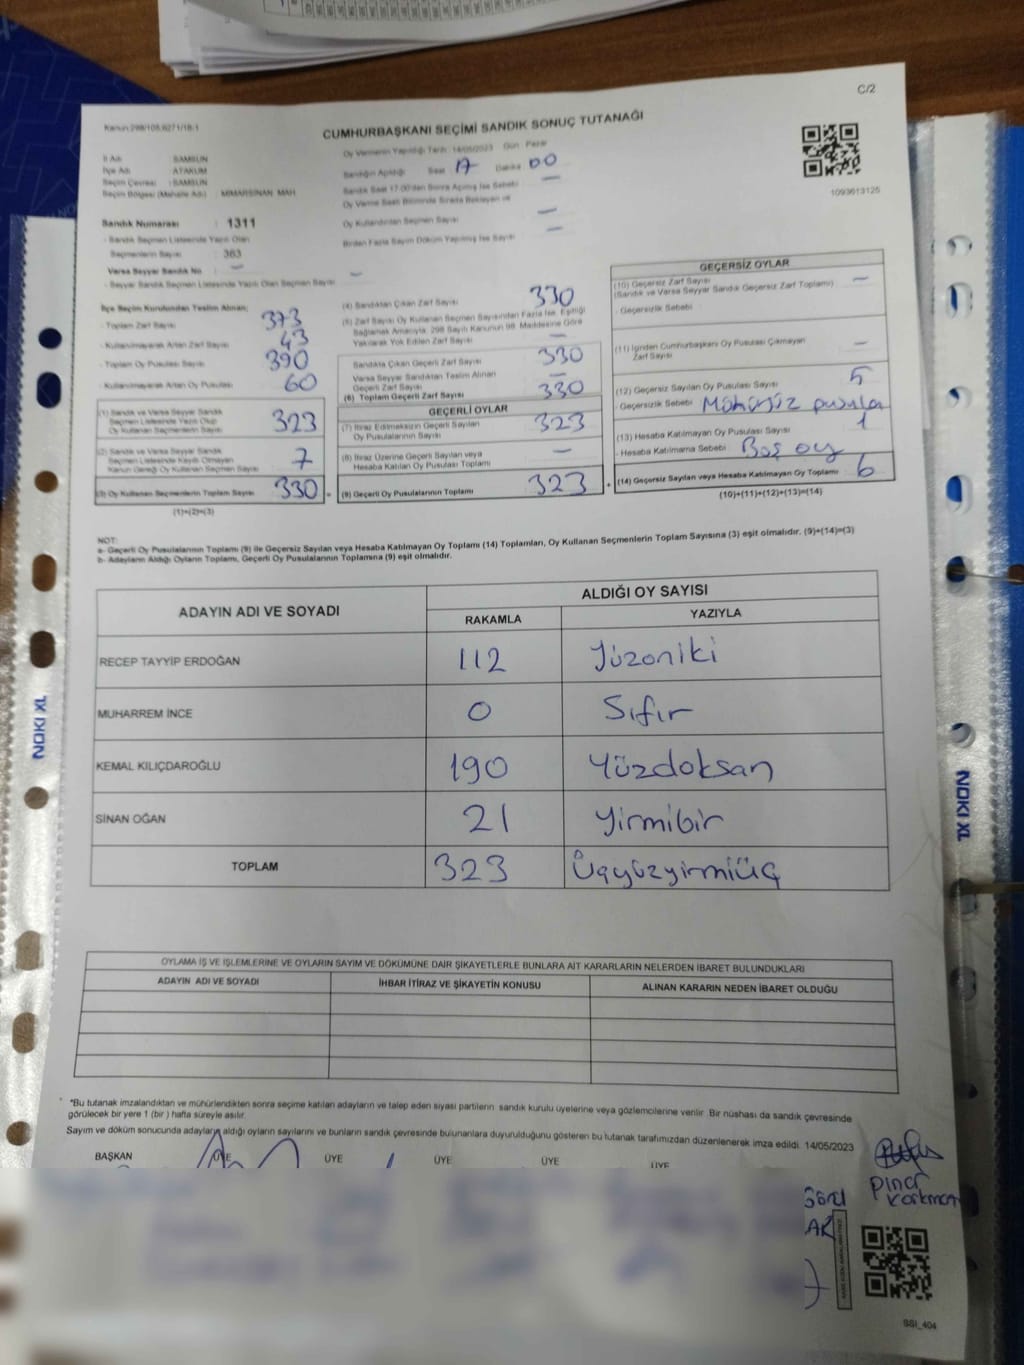 C/2
Kanun:298/105,6271/18-1
CUMHURBAŞKANI SEÇİMİ SANDIK SONUÇ TUTANAĞI
İl Adı : SAMSUN
İlçe Adı : ATAKUM
Seçim Çevresi : SAMSUN
Seçim Bölgesi (Mahalle Adı) : MİMARSİNAN MAH.
Sandık Numarası : 1311
- Sandık Seçmen Listesinde Yazılı Olan
Seçmenlerin Sayısı : 363
Varsa Seyyar Sandık No –
- Seyyar Sandık Seçmen Listesinde Yazılı Olan Seçmen Sayısı –
Oy Vermenin Yapıldığı Tarih 14/05/2023 Gün Pazar
Sandığın Açıldığı Saat 17 Dakika 00
Sandık Saat 17:00'den Sonra Açılmış İse Sebebi –
Oy Verme Saati Bitiminde Sırada Bekleyen ve
Oy Kullandırılan Seçmen Sayısı –
Birden Fazla Sayım Döküm Yapılmış İse Sayısı –
1093613125
İlçe Seçim Kurulundan Teslim Alınan;
- Toplam Zarf Sayısı 373
- Kullanılmayarak Artan Zarf Sayısı 43
- Toplam Oy Pusulası 390
- Kullanılmayarak Artan Oy Pusulası 60
(1) Sandık ve Varsa Seyyar Sandık
Seçmen Listesinde Yazılı Olup
Oy Kullanan Seçmenlerin Sayısı 323
(2) Sandık ve Varsa Seyyar Sandık
Seçmen Listesinde Kayıtlı Olmayan
Kanun Gereği Oy Kullanan Seçmen Sayısı 7
(3) Oy Kullanan Seçmenlerin Toplam Sayısı 330
(1)+(2)=(3)
(4) Sandıktan Çıkan Zarf Sayısı 330
(5) Zarf Sayısı Oy Kullanan Seçmen Sayısından Fazla İse, Eşitliği
Sağlamak Amacıyla, 298 Sayılı Kanunun 98. Maddesine Göre
Yakılarak Yok Edilen Zarf Sayısı –
Sandıkta Çıkan Geçerli Zarf Sayısı 330
Varsa Seyyar Sandıktan Teslim Alınan
Geçerli Zarf Sayısı –
(6) Toplam Geçerli Zarf Sayısı 330
GEÇERLİ OYLAR
(7) İtiraz Edilmeksizin Geçerli Sayılan
Oy Pusulalarının Sayısı 323
(8) İtiraz Üzerine Geçerli Sayılan veya
Hesaba Katılan Oy Pusulası Toplamı –
(9) Geçerli Oy Pusulalarının Toplamı 323
GEÇERSİZ OYLAR
(10) Geçersiz Zarf Sayısı
(Sandık ve Varsa Seyyar Sandık Geçersiz Zarf Toplamı) –
- Geçersizlik Sebebi
(11) İçinden Cumhurbaşkanı Oy Pusulası Çıkmayan
Zarf Sayısı –
(12) Geçersiz Sayılan Oy Pusulası Sayısı 5
- Geçersizlik Sebebi Mühürsüz pusula
(13) Hesaba Katılmayan Oy Pusulası Sayısı 1
- Hesaba Katılmama Sebebi Boş oy
(14) Geçersiz Sayılan veya Hesaba Katılmayan Oy Toplamı 6
(10)+(11)+(12)+(13)=(14)
NOT:
a- Geçerli Oy Pusulalarının Toplamı (9) ile Geçersiz Sayılan veya Hesaba Katılmayan Oy Toplamı (14) Toplamları, Oy Kullanan Seçmenlerin Toplam Sayısına (3) eşit olmalıdır. (9)+(14)=(3)
b- Adayların Aldığı Oyların Toplamı, Geçerli Oy Pusulalarının Toplamına (9) eşit olmalıdır.
ADAYIN ADI VE SOYADI ALDIĞI OY SAYISI
RAKAMLA YAZIYLA
RECEP TAYYİP ERDOĞAN 112 Yüzoniki
MUHARREM İNCE 0 Sıfır
KEMAL KILIÇDAROĞLU 190 Yüzdoksan
SİNAN OĞAN 21 Yirmibir
TOPLAM 323 Üçyüzyirmiüç
NOKI XL
NOKI XL
OYLAMA İŞ VE İŞLEMLERİNE VE OYLARIN SAYIM VE DÖKÜMÜNE DAİR ŞİKAYETLERLE BUNLARA AİT KARARLARIN NELERDEN İBARET BULUNDUKLARI
ADAYIN ADI VE SOYADI İHBAR İTİRAZ VE ŞİKAYETİN KONUSU ALINAN KARARIN NEDEN İBARET OLDUĞU
*Bu tutanak imzalandıktan ve mühürlendikten sonra seçime katılan adayların ve talep eden siyasi partilerin sandık kurulu üyelerine veya gözlemcilerine verilir. Bir nüshası da sandık çevresinde
görülecek bir yere 1 (bir ) hafta süreyle asılır.
Sayım ve döküm sonucunda adayların aldığı oyların sayılarını ve bunların sandık çevresinde bulunanlara duyurulduğunu gösteren bu tutanak tarafımızdan düzenlenerek imza edildi. 14/05/2023
BAŞKAN ÜYE ÜYE ÜYE ÜYE ÜYE
Pınar
Korkmaz
SSI_404